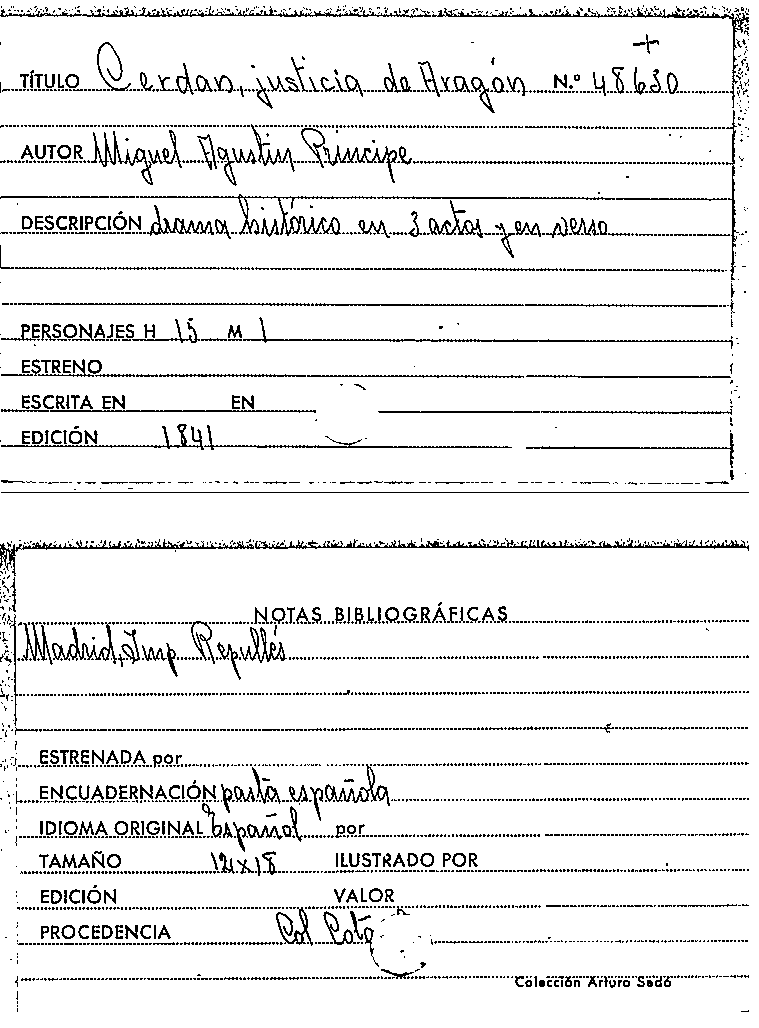 +
TÍTULO Cerdan, justicia de Aragón N.º 48630
AUTOR Miguel Agustin Principe
DESCRIPCIÓN drama histórico en 3 actos y en verso
PERSONAJES H 15 M 1
ESTRENO
ESCRITA EN EN
EDICIÓN 1841
NOTAS BIBLIOGRÁFICAS
Madrid, Imp. Repullés
ESTRENADA por
ENCUADERNACIÓN pasta española
IDIOMA ORIGINAL Español por
TAMAÑO 12x18 ILUSTRADO POR
EDICIÓN VALOR
PROCEDENCIA Col Cota
Colección Arturo Sedó